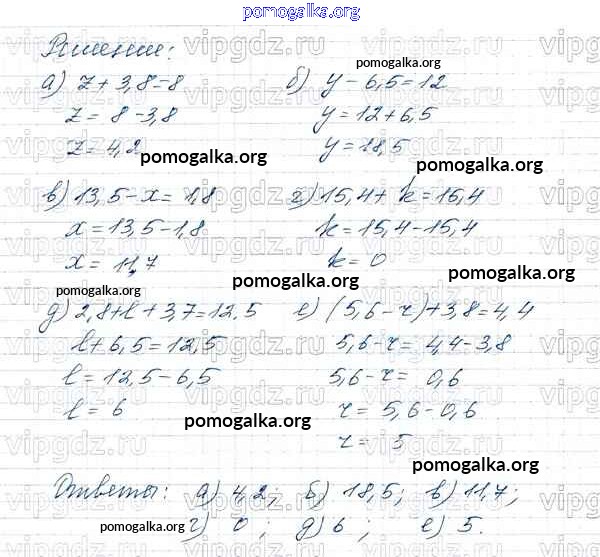 pomogalka.org
Решение:
а) z + 3,8 = 8
z = 8 - 3,8
z = 4,2
pomogalka.org
б) y - 6,5 = 12
y = 12 + 6,5
y = 18,5
pomogalka.org
pomogalka.org
в) 13,5 - x = 1,8
x = 13,5 - 1,8
x = 11,7
pomogalka.org
г) 15,4 + k = 15,4
k = 15,4 - 15,4
k = 0
pomogalka.org
pomogalka.org
pomogalka.org
д) 2,8 + l + 3,7 = 12,5
l + 6,5 = 12,5
l = 12,5 - 6,5
l = 6
pomogalka.org
е) (5,6 - r) + 3,8 = 4,4
5,6 - r = 4,4 - 3,8
5,6 - r = 0,6
r = 5,6 - 0,6
r = 5
pomogalka.org
Ответы: а) 4,2; б) 18,5; в) 11,7;
pomogalka.org
г) 0; д) 6; е) 5.
vipgdz.ru